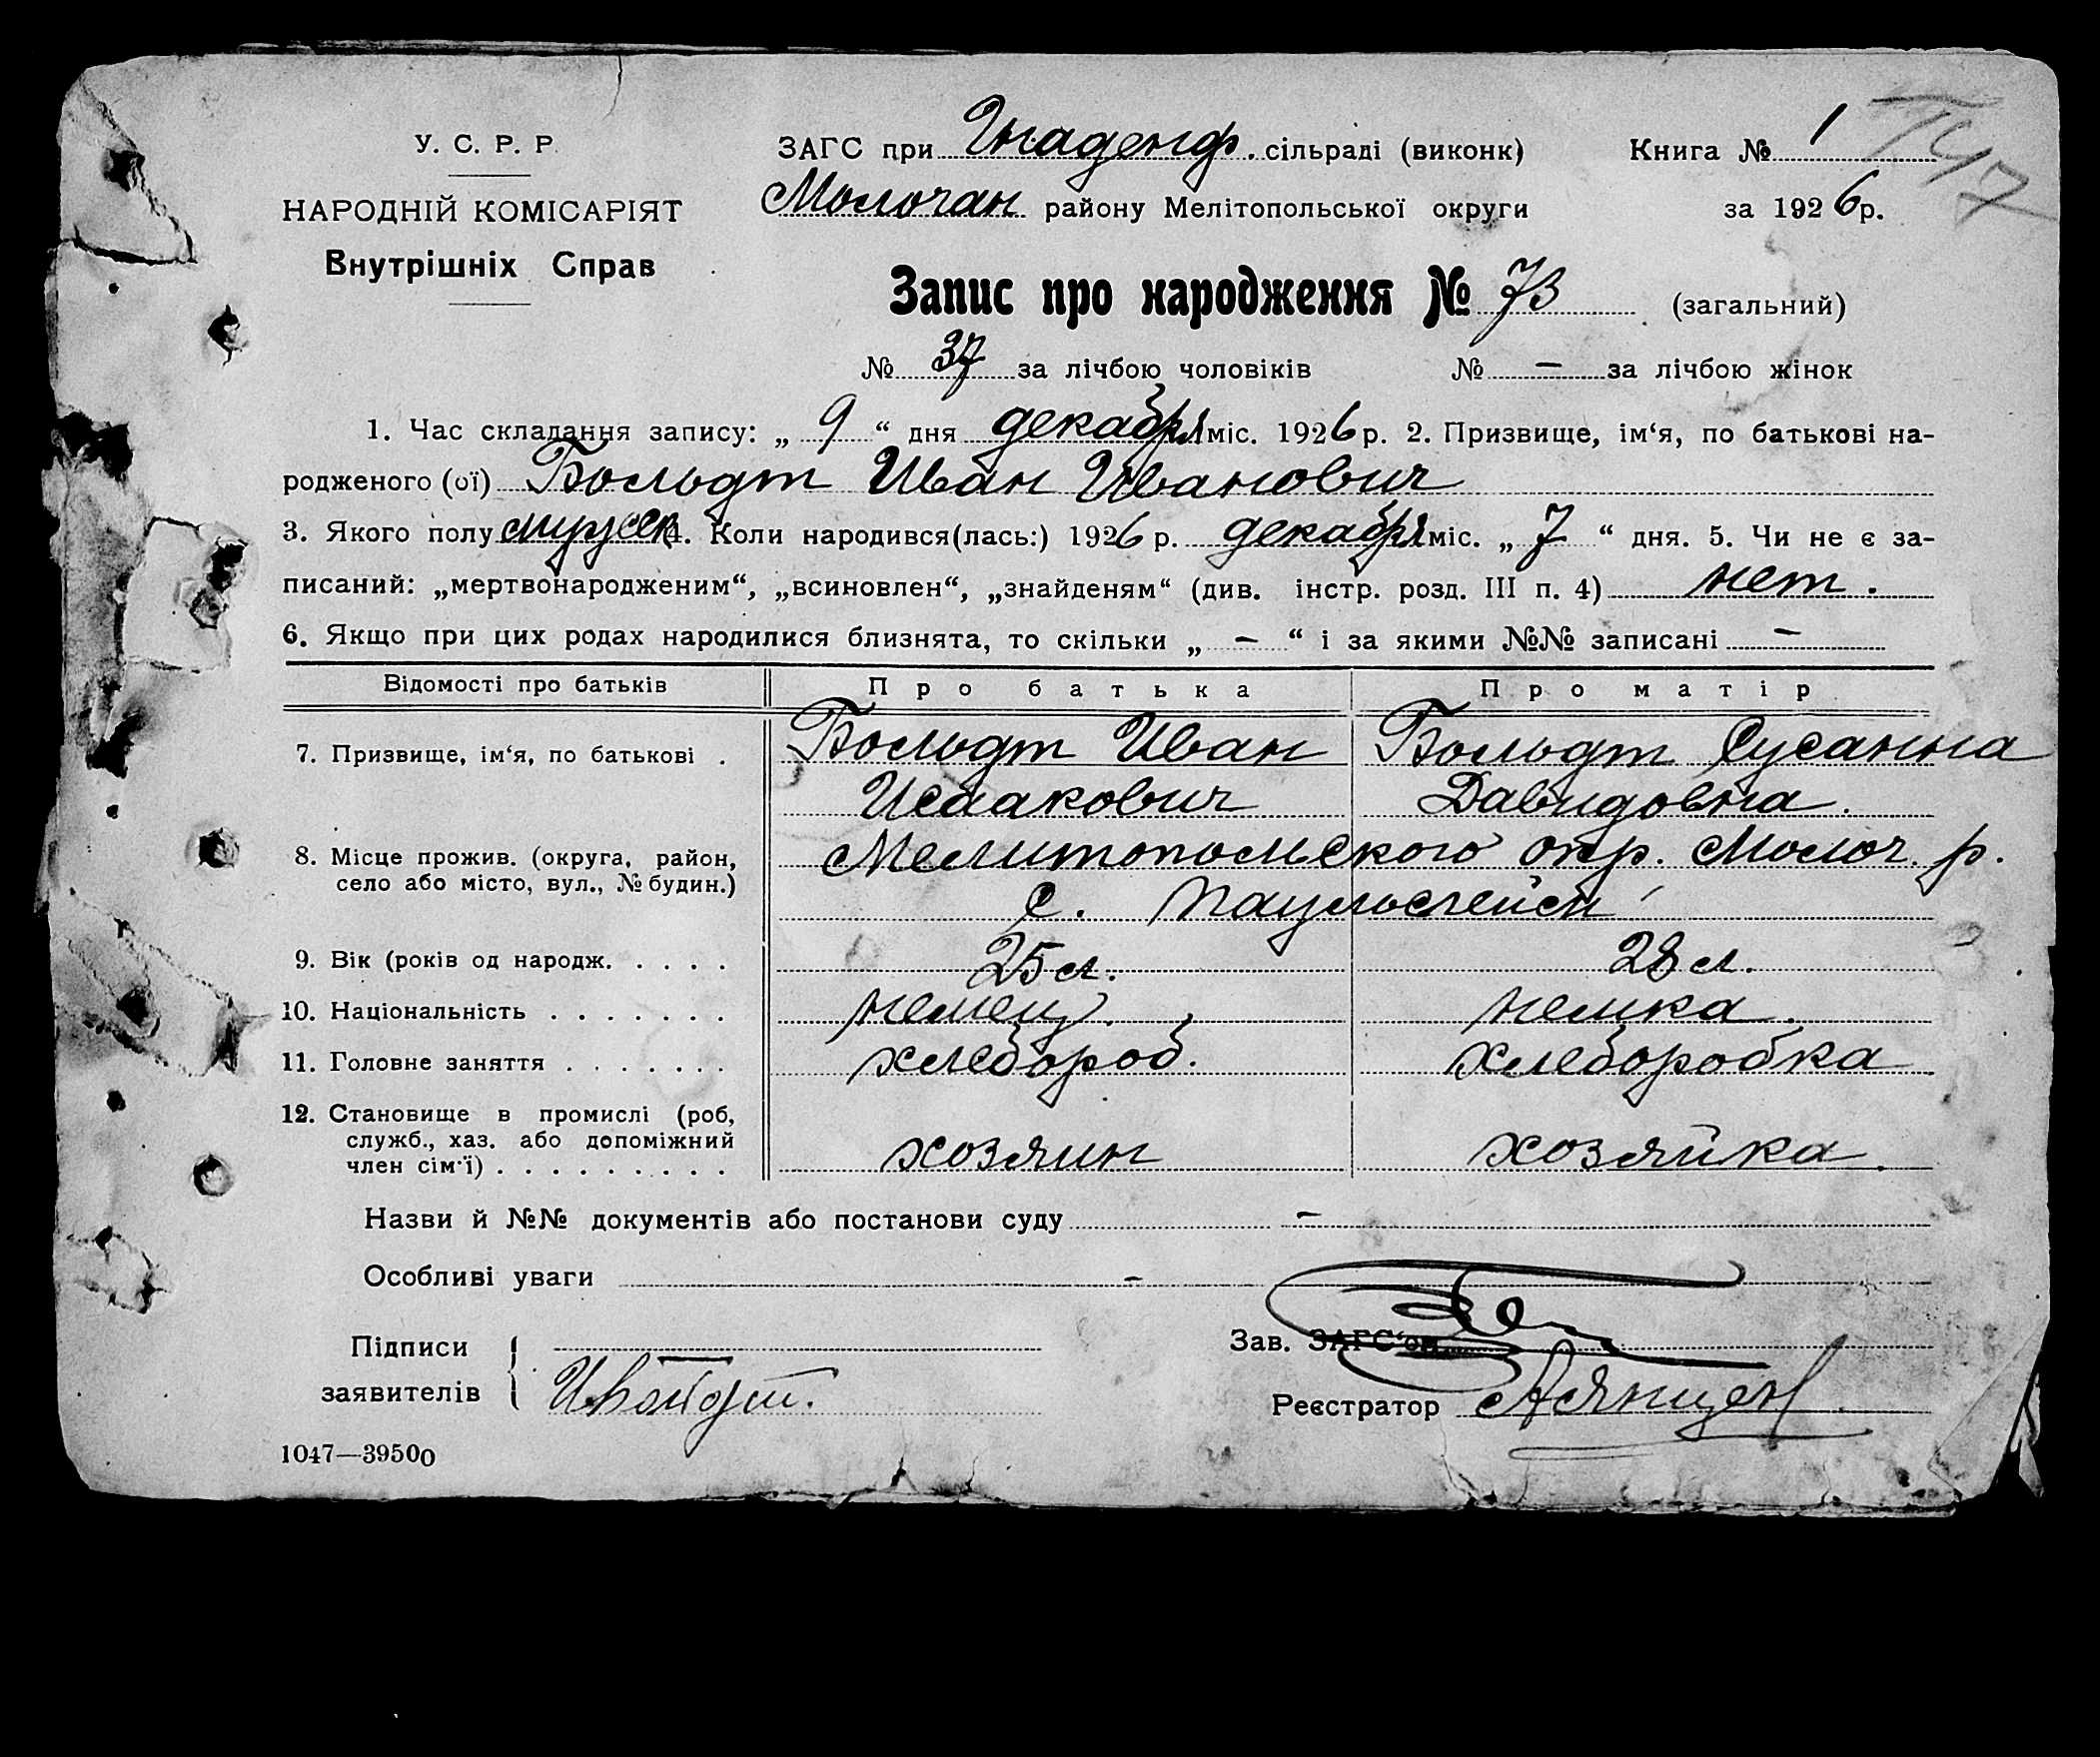 У. С. Р. Р.
НАРОДНІЙ КОМІСАРІЯТ
Внутрішніх Справ
ЗАГС при Гнаденф. сільраді (виконк)
Молочан району Мелітопольської округи
Книга № 1
за 1926р.
Запис про народження № 73 (загальний)
№ 37 за лічбою чоловіків № — за лічбою жінок
1. Час складання запису: „ 9 “ дня декабря міс. 1926 р. 2. Призвище, ім‘я, по батькові на-
родженого (ої) Больдт Иван Иванович
3. Якого полу мужск 4. Коли народився(лась:) 1926 р. декабря міс. „ 7 “ дня. 5. Чи не є за-
писаний: „мертвонародженим“, „всиновлен“, „знайденям“ (див. інстр. розд. III п. 4) нет.
6. Якщо при цих родах народилися близнята, то скільки „ — “ і за якими №№ записані —
Відомості про батьків Про батька Про матір
7. Призвище, ім‘я, по батькові . Больдт Иван Больдт Сусанна
Исаакович Давидовна.
8. Місце прожив. (округа, район, Мелитопольского окр. Молоч. р.
село або місто, вул., № будин.) с. Паульсгейм
9. Вік (років од народж. . . . . 25 л. 28 л.
10. Національність . . . . . . . немец. немка.
11. Головне заняття . . . . . . . хлебороб. хлеборобка
12. Становище в промислі (роб,
служб., хаз. або допоміжний
член сім‘ї) . . . . . . . . . хозяин хозяйка.
Назви й №№ документів або постанови суду —
Особливі уваги —
Підписи
заявителів
Зав. ЗАГС‘ом
Реєстратор
1047—39500